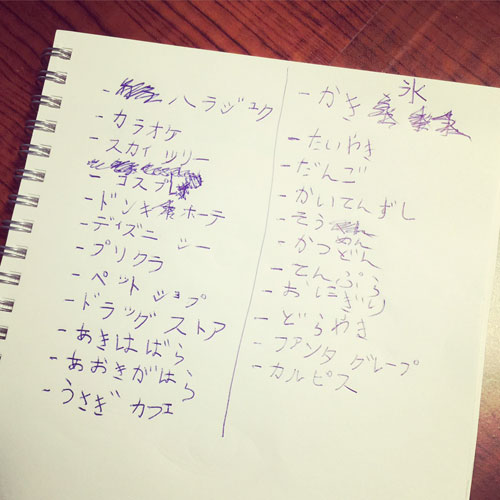 - ハラジュク
- カラオケ
- スカイ ツリー
- コスプレ
- ドンキ ホーテ
- ディズニー シー
- プリクラ
- ペット ショプ
- ドラッグ ストア
- あきはばら
- あおきがはら
- うさぎ カフェ
- かき氷
- たいやき
- だんご
- かいてんずし
- そうめん
- かつどん
- てんぷら
- おにぎり
- どらやき
- ファンタ グレープ
- カルピス